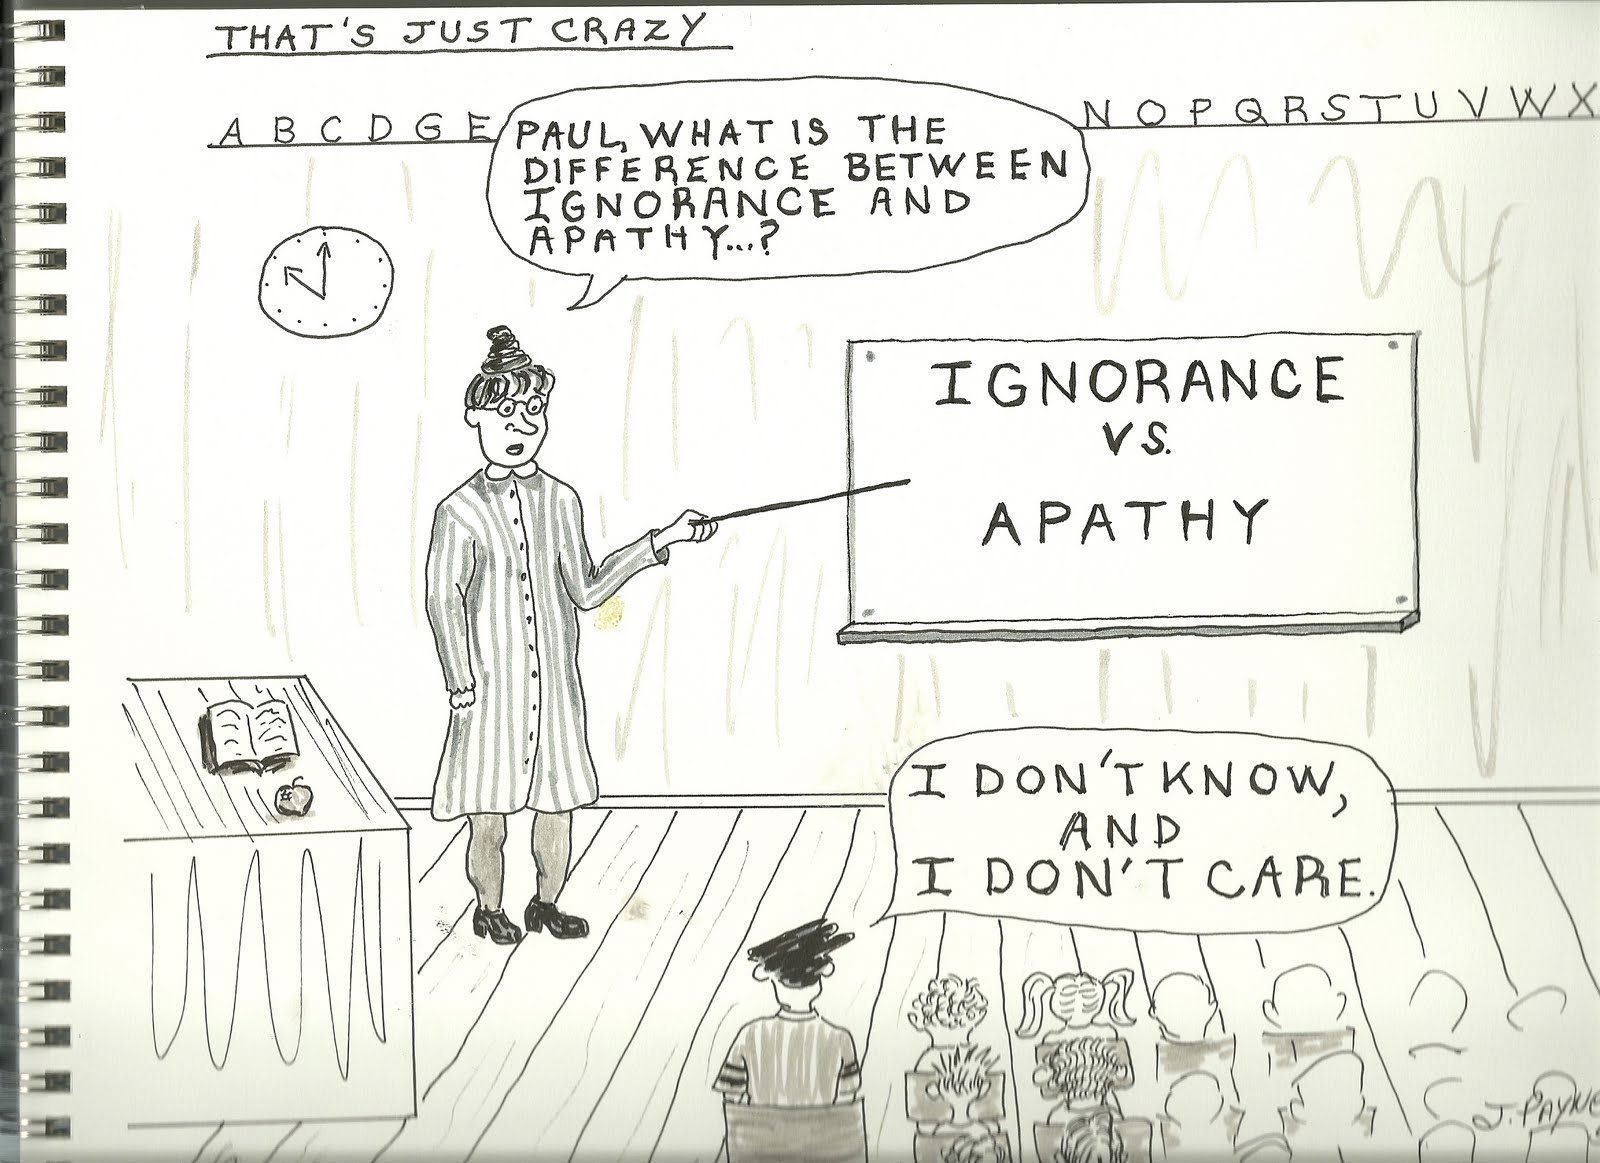 THAT'S JUST CRAZY
A B C D G E
N O P Q R S T U V W X
PAUL, WHAT IS THE
DIFFERENCE BETWEEN
IGNORANCE AND
APATHY...?
IGNORANCE
VS.
APATHY
I DON'T KNOW,
AND
I DON'T CARE.
J. PAYNE